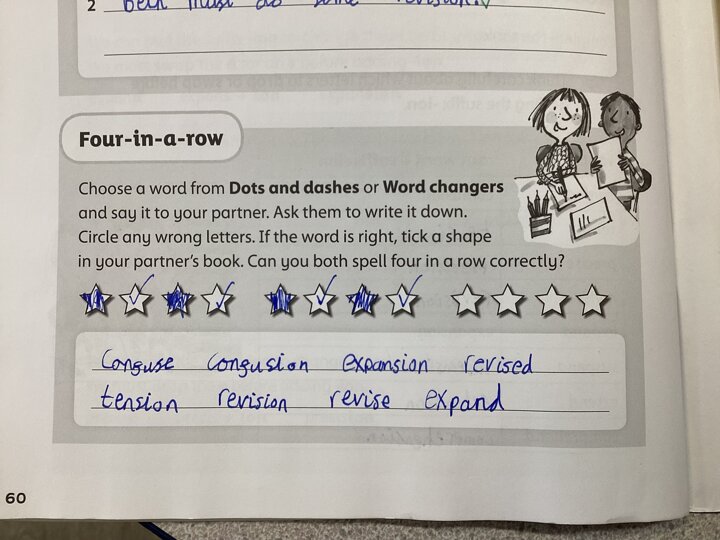 2 Beth must do some revision.
Four-in-a-row
Choose a word from Dots and dashes or Word changers
and say it to your partner. Ask them to write it down.
Circle any wrong letters. If the word is right, tick a shape
in your partner's book. Can you both spell four in a row correctly?
Conguse congusion expansion revised
tension revision revise expand
60